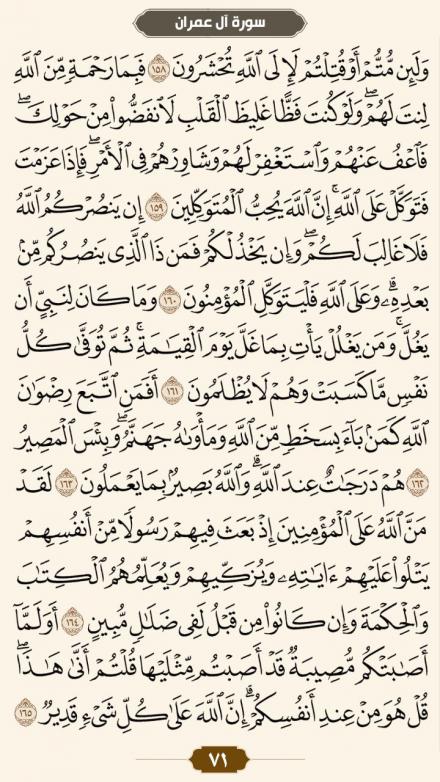 سورة آل عمران
وَلَئِن مُّتُّمْ أَوْ قُتِلْتُمْ لَإِلَى ٱللَّهِ تُحْشَرُونَ ١٥٨ فَبِمَا رَحْمَةٍ مِّنَ ٱللَّهِ
لِنتَ لَهُمْ ۖ وَلَوْ كُنتَ فَظًّا غَلِيظَ ٱلْقَلْبِ لَٱنفَضُّوا۟ مِنْ حَوْلِكَ ۖ
فَٱعْفُ عَنْهُمْ وَٱسْتَغْفِرْ لَهُمْ وَشَاوِرْهُمْ فِى ٱلْأَمْرِ ۖ فَإِذَا عَزَمْتَ
فَتَوَكَّلْ عَلَى ٱللَّهِ ۚ إِنَّ ٱللَّهَ يُحِبُّ ٱلْمُتَوَكِّلِينَ ١٥٩ إِن يَنصُرْكُمُ ٱللَّهُ
فَلَا غَالِبَ لَكُمْ ۖ وَإِن يَخْذُلْكُمْ فَمَن ذَا ٱلَّذِى يَنصُرُكُم مِّنۢ
بَعْدِهِۦ ۗ وَعَلَى ٱللَّهِ فَلْيَتَوَكَّلِ ٱلْمُؤْمِنُونَ ١٦٠ وَمَا كَانَ لِنَبِىٍّ أَن
يَغُلَّ ۚ وَمَن يَغْلُلْ يَأْتِ بِمَا غَلَّ يَوْمَ ٱلْقِيَـٰمَةِ ۚ ثُمَّ تُوَفَّىٰ كُلُّ
نَفْسٍ مَّا كَسَبَتْ وَهُمْ لَا يُظْلَمُونَ ١٦١ أَفَمَنِ ٱتَّبَعَ رِضْوَٰنَ
ٱللَّهِ كَمَنۢ بَآءَ بِسَخَطٍ مِّنَ ٱللَّهِ وَمَأْوَىٰهُ جَهَنَّمُ ۚ وَبِئْسَ ٱلْمَصِيرُ
١٦٢ هُمْ دَرَجَـٰتٌ عِندَ ٱللَّهِ ۗ وَٱللَّهُ بَصِيرٌۢ بِمَا يَعْمَلُونَ ١٦٣ لَقَدْ
مَنَّ ٱللَّهُ عَلَى ٱلْمُؤْمِنِينَ إِذْ بَعَثَ فِيهِمْ رَسُولًا مِّنْ أَنفُسِهِمْ
يَتْلُوا۟ عَلَيْهِمْ ءَايَـٰتِهِۦ وَيُزَكِّيهِمْ وَيُعَلِّمُهُمُ ٱلْكِتَـٰبَ
وَٱلْحِكْمَةَ وَإِن كَانُوا۟ مِن قَبْلُ لَفِى ضَلَـٰلٍ مُّبِينٍ ١٦٤ أَوَلَمَّآ
أَصَـٰبَتْكُم مُّصِيبَةٌ قَدْ أَصَبْتُم مِّثْلَيْهَا قُلْتُمْ أَنَّىٰ هَـٰذَا ۖ
قُلْ هُوَ مِنْ عِندِ أَنفُسِكُمْ ۗ إِنَّ ٱللَّهَ عَلَىٰ كُلِّ شَىْءٍ قَدِيرٌ ١٦٥
٧١